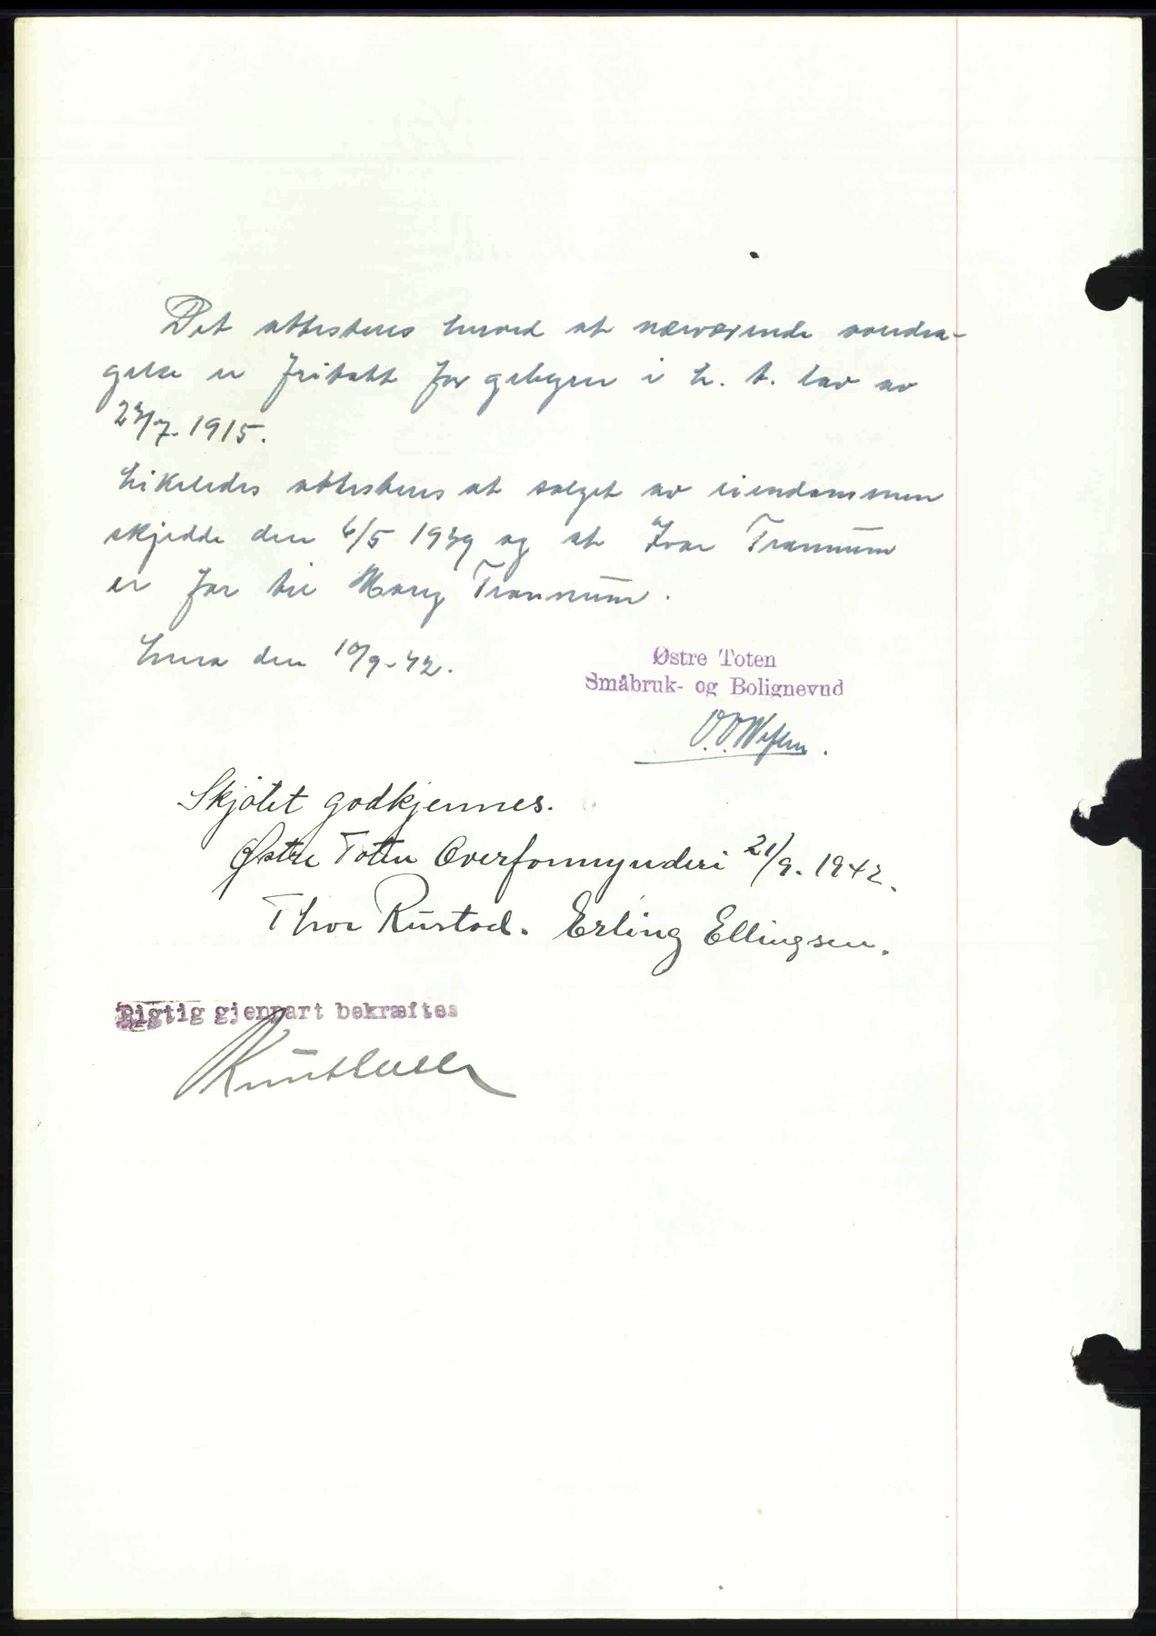 Det attesteres herved at nærværende overdra-
gelse er fritatt for gebyrer i h. t. lov av
1915.
Likeledes attesteres at salget av eiendommen
skjedde den 6/5 1939 og at Ivar Trannum
er far til Mary Trannum.
Lena den 10/9-42.
Østre Toten
Småbruk- og Bolignevnd
Skjøtet godkjennes.
Østre Toten Overformynderi 21/9. 1942.
Thor Rustad. Erling Ellingsen.
Rigtig gjenpart bekræftes